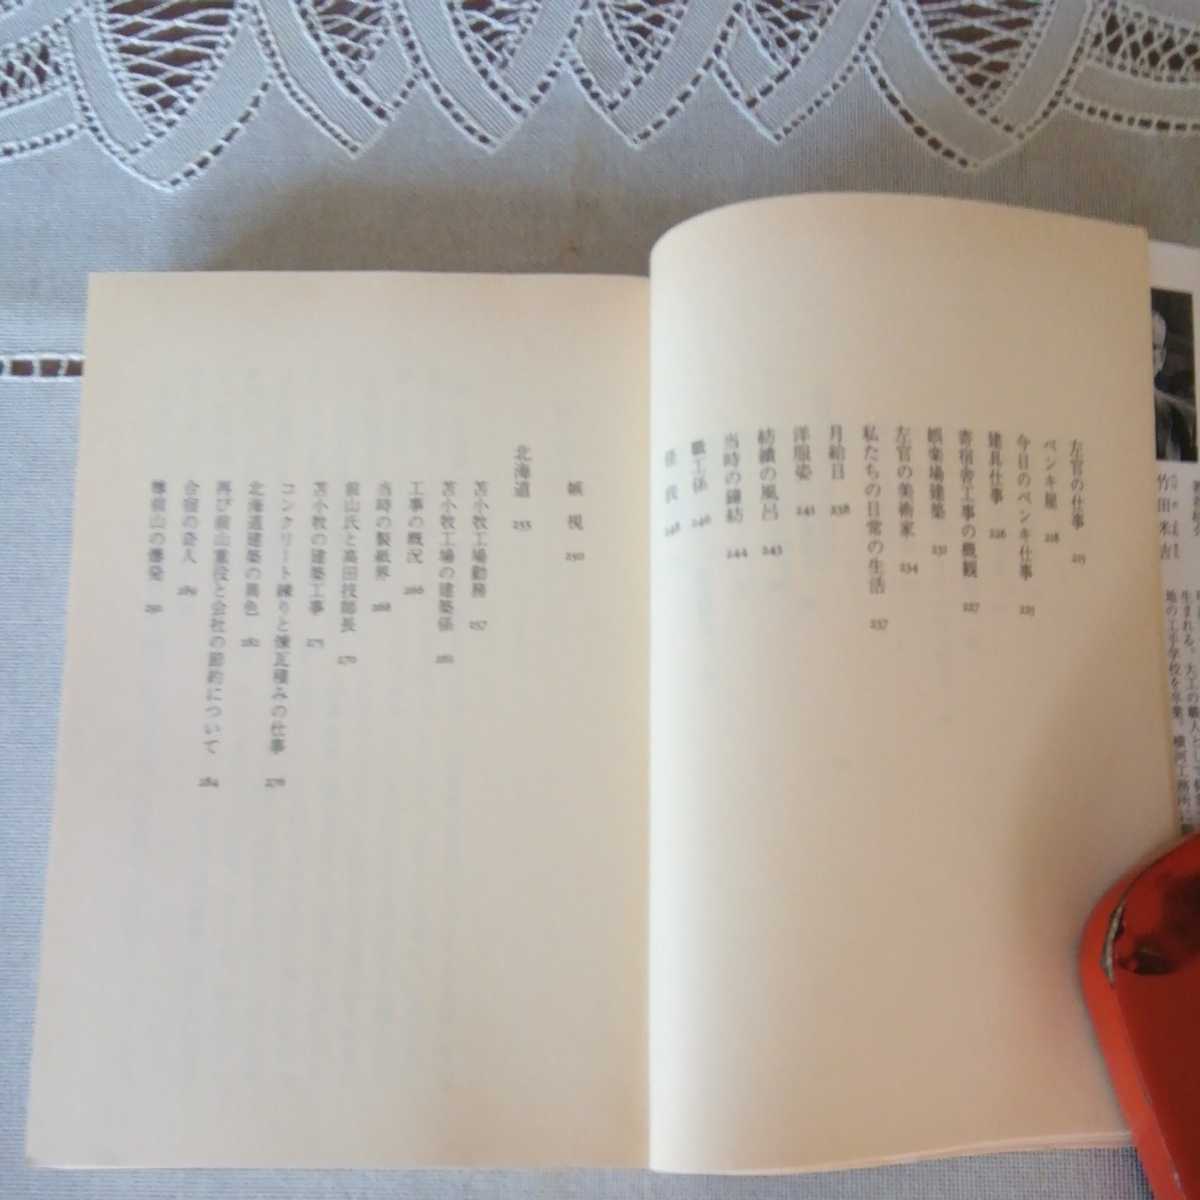 左官の仕事 215
ペンキ屋 218
今日のペンキ仕事 225
建具仕事 226
寄宿舎工事の概観 227
娯楽場建築 231
左官の美術家 234
私たちの日常の生活 237
月給日 238
洋服姿 241
紡績の風呂 243
当時の鐘紡 244
職工係 246
怪我 248
嫉視 250
北海道 255
苫小牧工場勤務 257
苫小牧工場の建築係 261
工事の概況 266
当時の製紙界 268
前山氏と高田技師長 270
苫小牧の建築工事 275
コンクリート練りと煉瓦積みの仕事 276
北海道建築の異色 282
再び前山重役と会社の節約について 284
合宿の奇人 289
樽前山の爆発 291
竹田米吉
生まれる。大工の職人として
地の工手学校を卒業。横河工務所